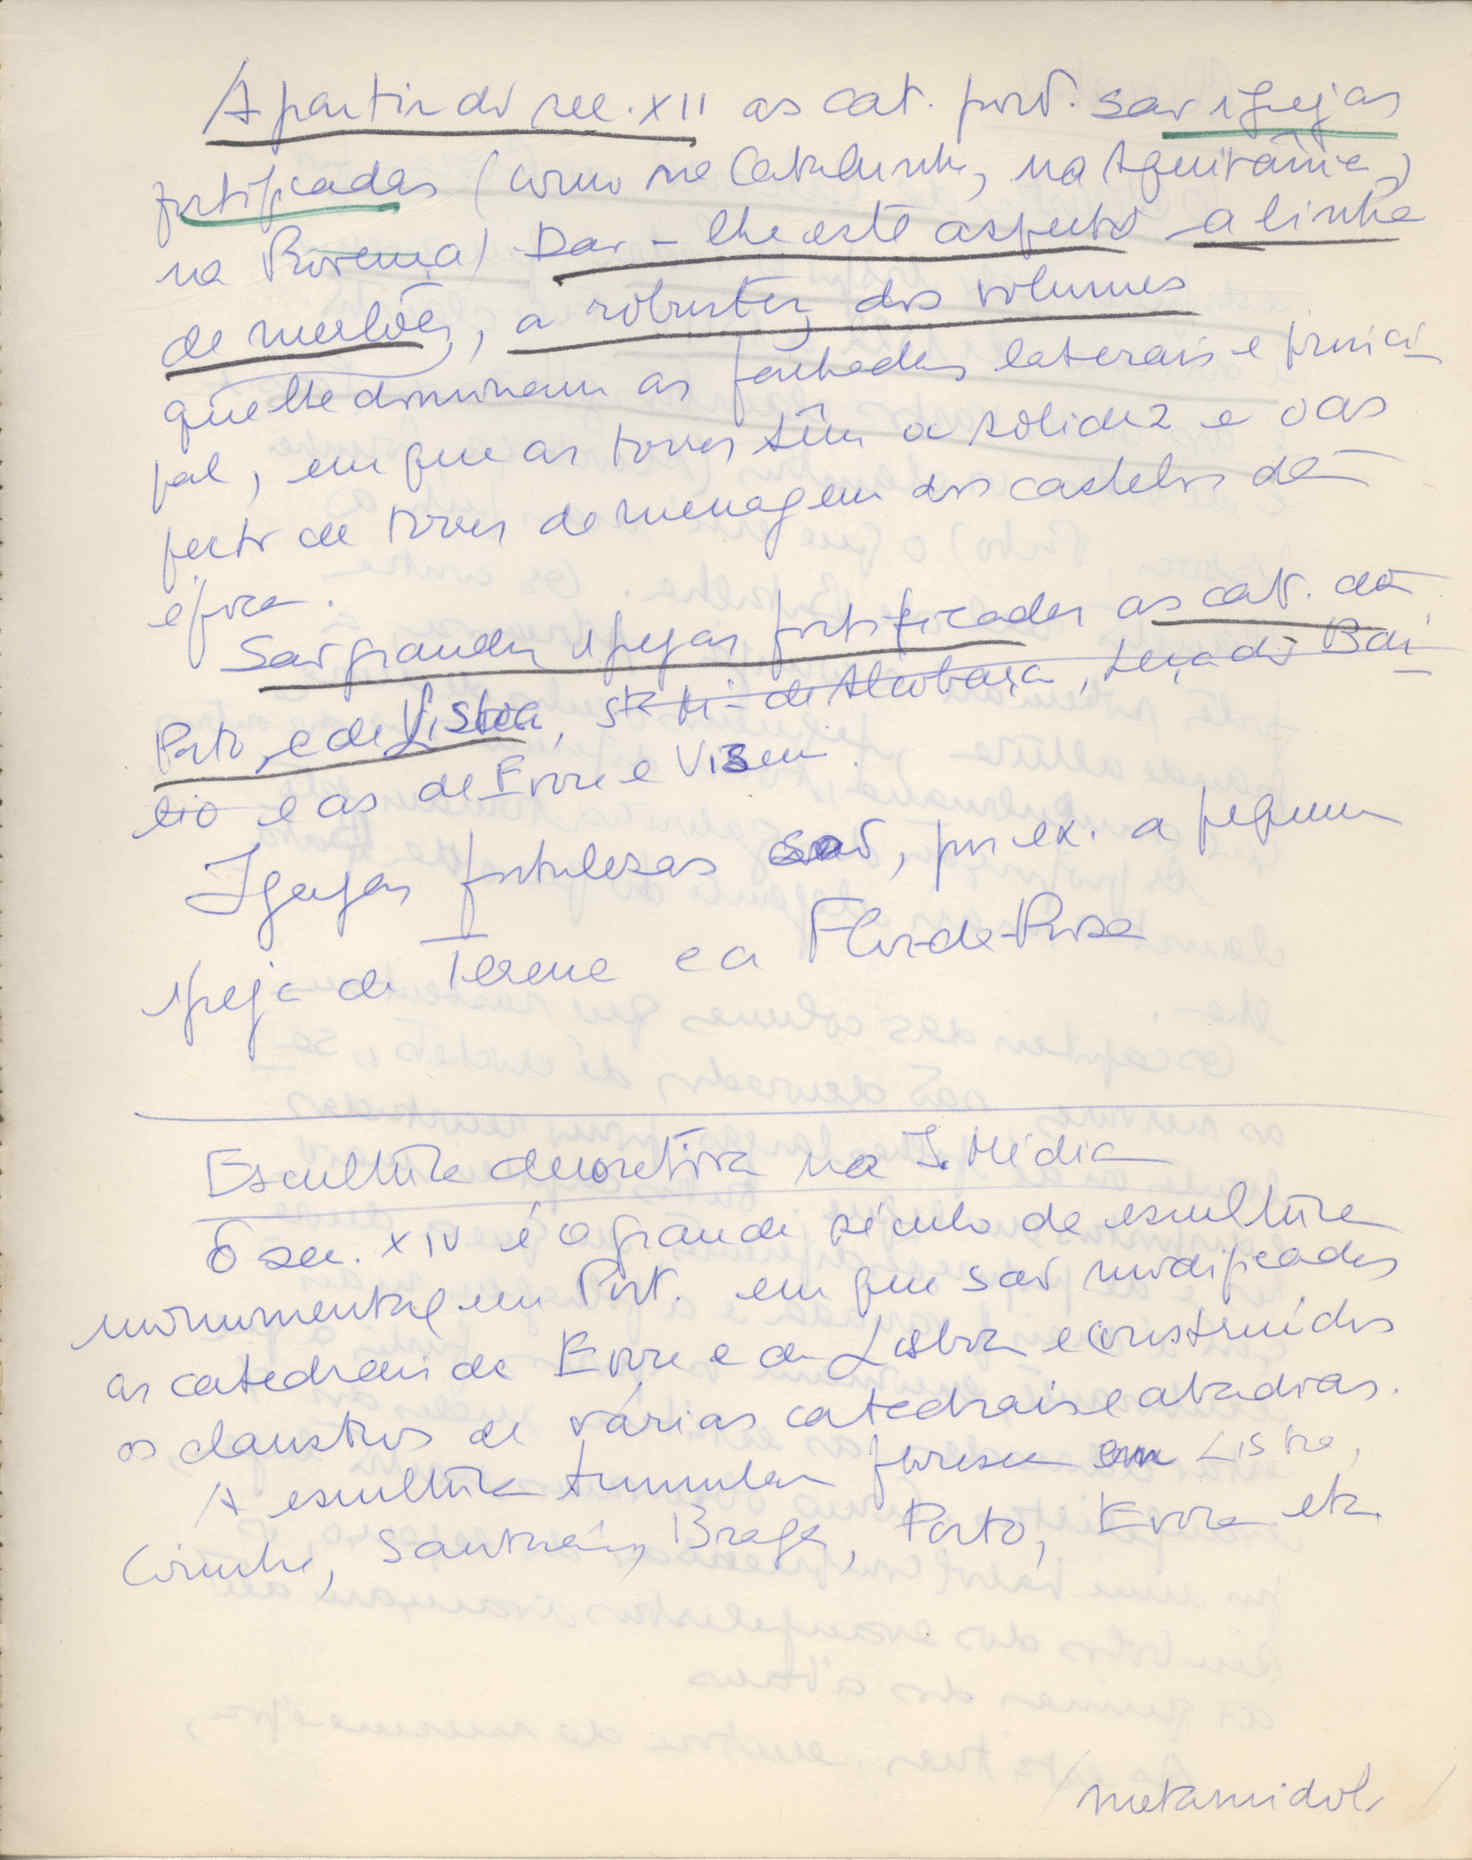 A partir do sec. XII as cat. port. são igrejas
fortificadas (como na Catalunha, na Aquitânia,
na Provença) Dão-lhe este aspecto a linha
de merlões, a robustez dos volumes
que lhe dominam as fachadas laterais e princi
pal, em que as torres têm a solidez e o as
pecto de torres de menagem dos castelos da
época.
São grandes igrejas fortificadas as cat. do
Porto, e de Lisboa, Sta Mª de Alcobaça, Leça do Bai
lio e as de Evora e Viseu.
Igrejas fortalezas são, por ex. a pequena
igreja de Terena e a Flor-da-Rosa
Escultura decorativa na I. Média
O sec. XIV é o grande século da escultura
monumental em Port. em que são modificadas
as catedrais de Evora e de Lisboa e construídos
os claustros de várias catedrais e abadias.
A escultura tumular floresce em Lisboa,
Coimbra, Santarém, Braga, Porto, Evora etc.
metamidol